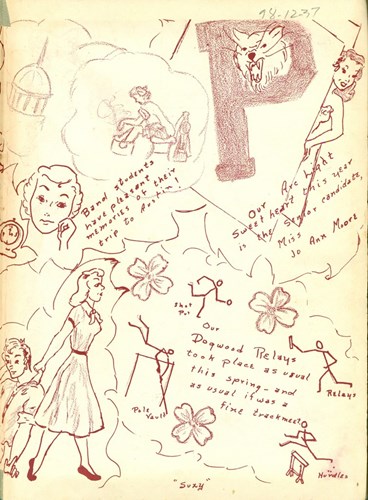 94-12-37
P
Band students
have pleasant
memories of their
trip to Austin!
Our Arc Light
Sweetheart this year
is the Senior candidate,
Miss
Jo Ann Moore
Shot
Put
Our
Dogwood Relays
took place as usual
this spring - and
as usual it was a
fine trackmeet
Relays
Pole
Vault
Hurdles
"Suzy"